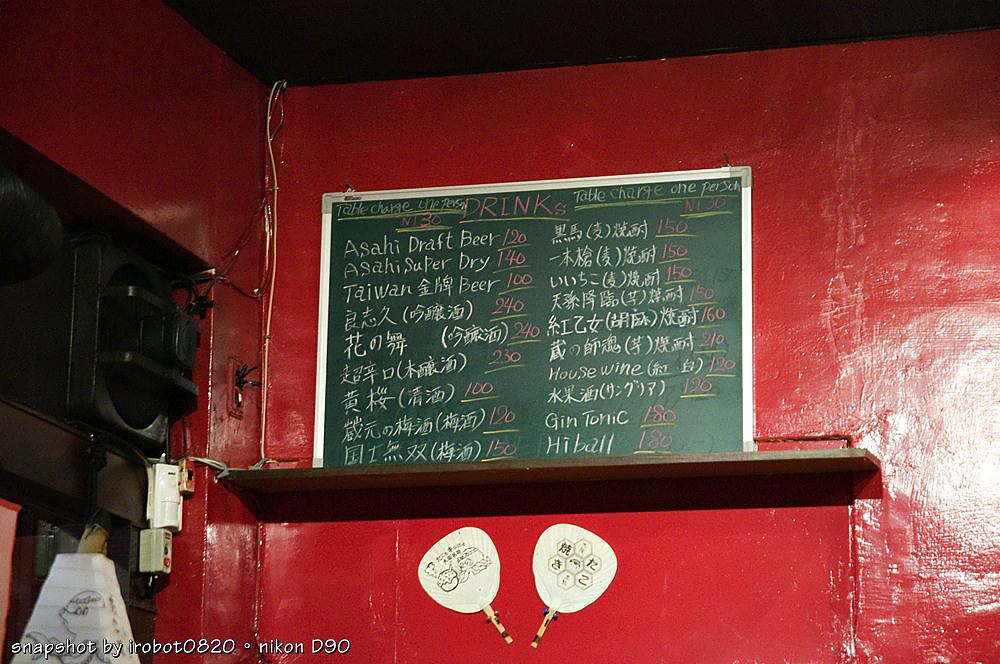 Table charge one person
N130
DRINKs
Table charge one person
N130
Asahi Draft Beer 120
Asahi Super Dry 140
Taiwan 金牌 Beer 100
良志久 (吟醸酒) 240
花の舞 (吟醸酒) 240
超辛口 (本醸酒) 230
黄桜 (清酒) 100
蔵元の梅酒 (梅酒) 120
国士無双 (梅酒) 150
黒馬 (麦) 焼酎 150
一本槍 (麦) 焼酎 150
いいちこ (麦) 焼酎 150
天孫降臨 (芋) 焼酎 150
紅乙女 (胡麻) 焼酎 160
蔵の師魂 (芋) 焼酎 210
House wine (紅 白) 120
水果酒 (サングリア) 120
Gin Tonic 180
Hiball 180
たこ
焼き
snapshot by irobot0820 • nikon D90